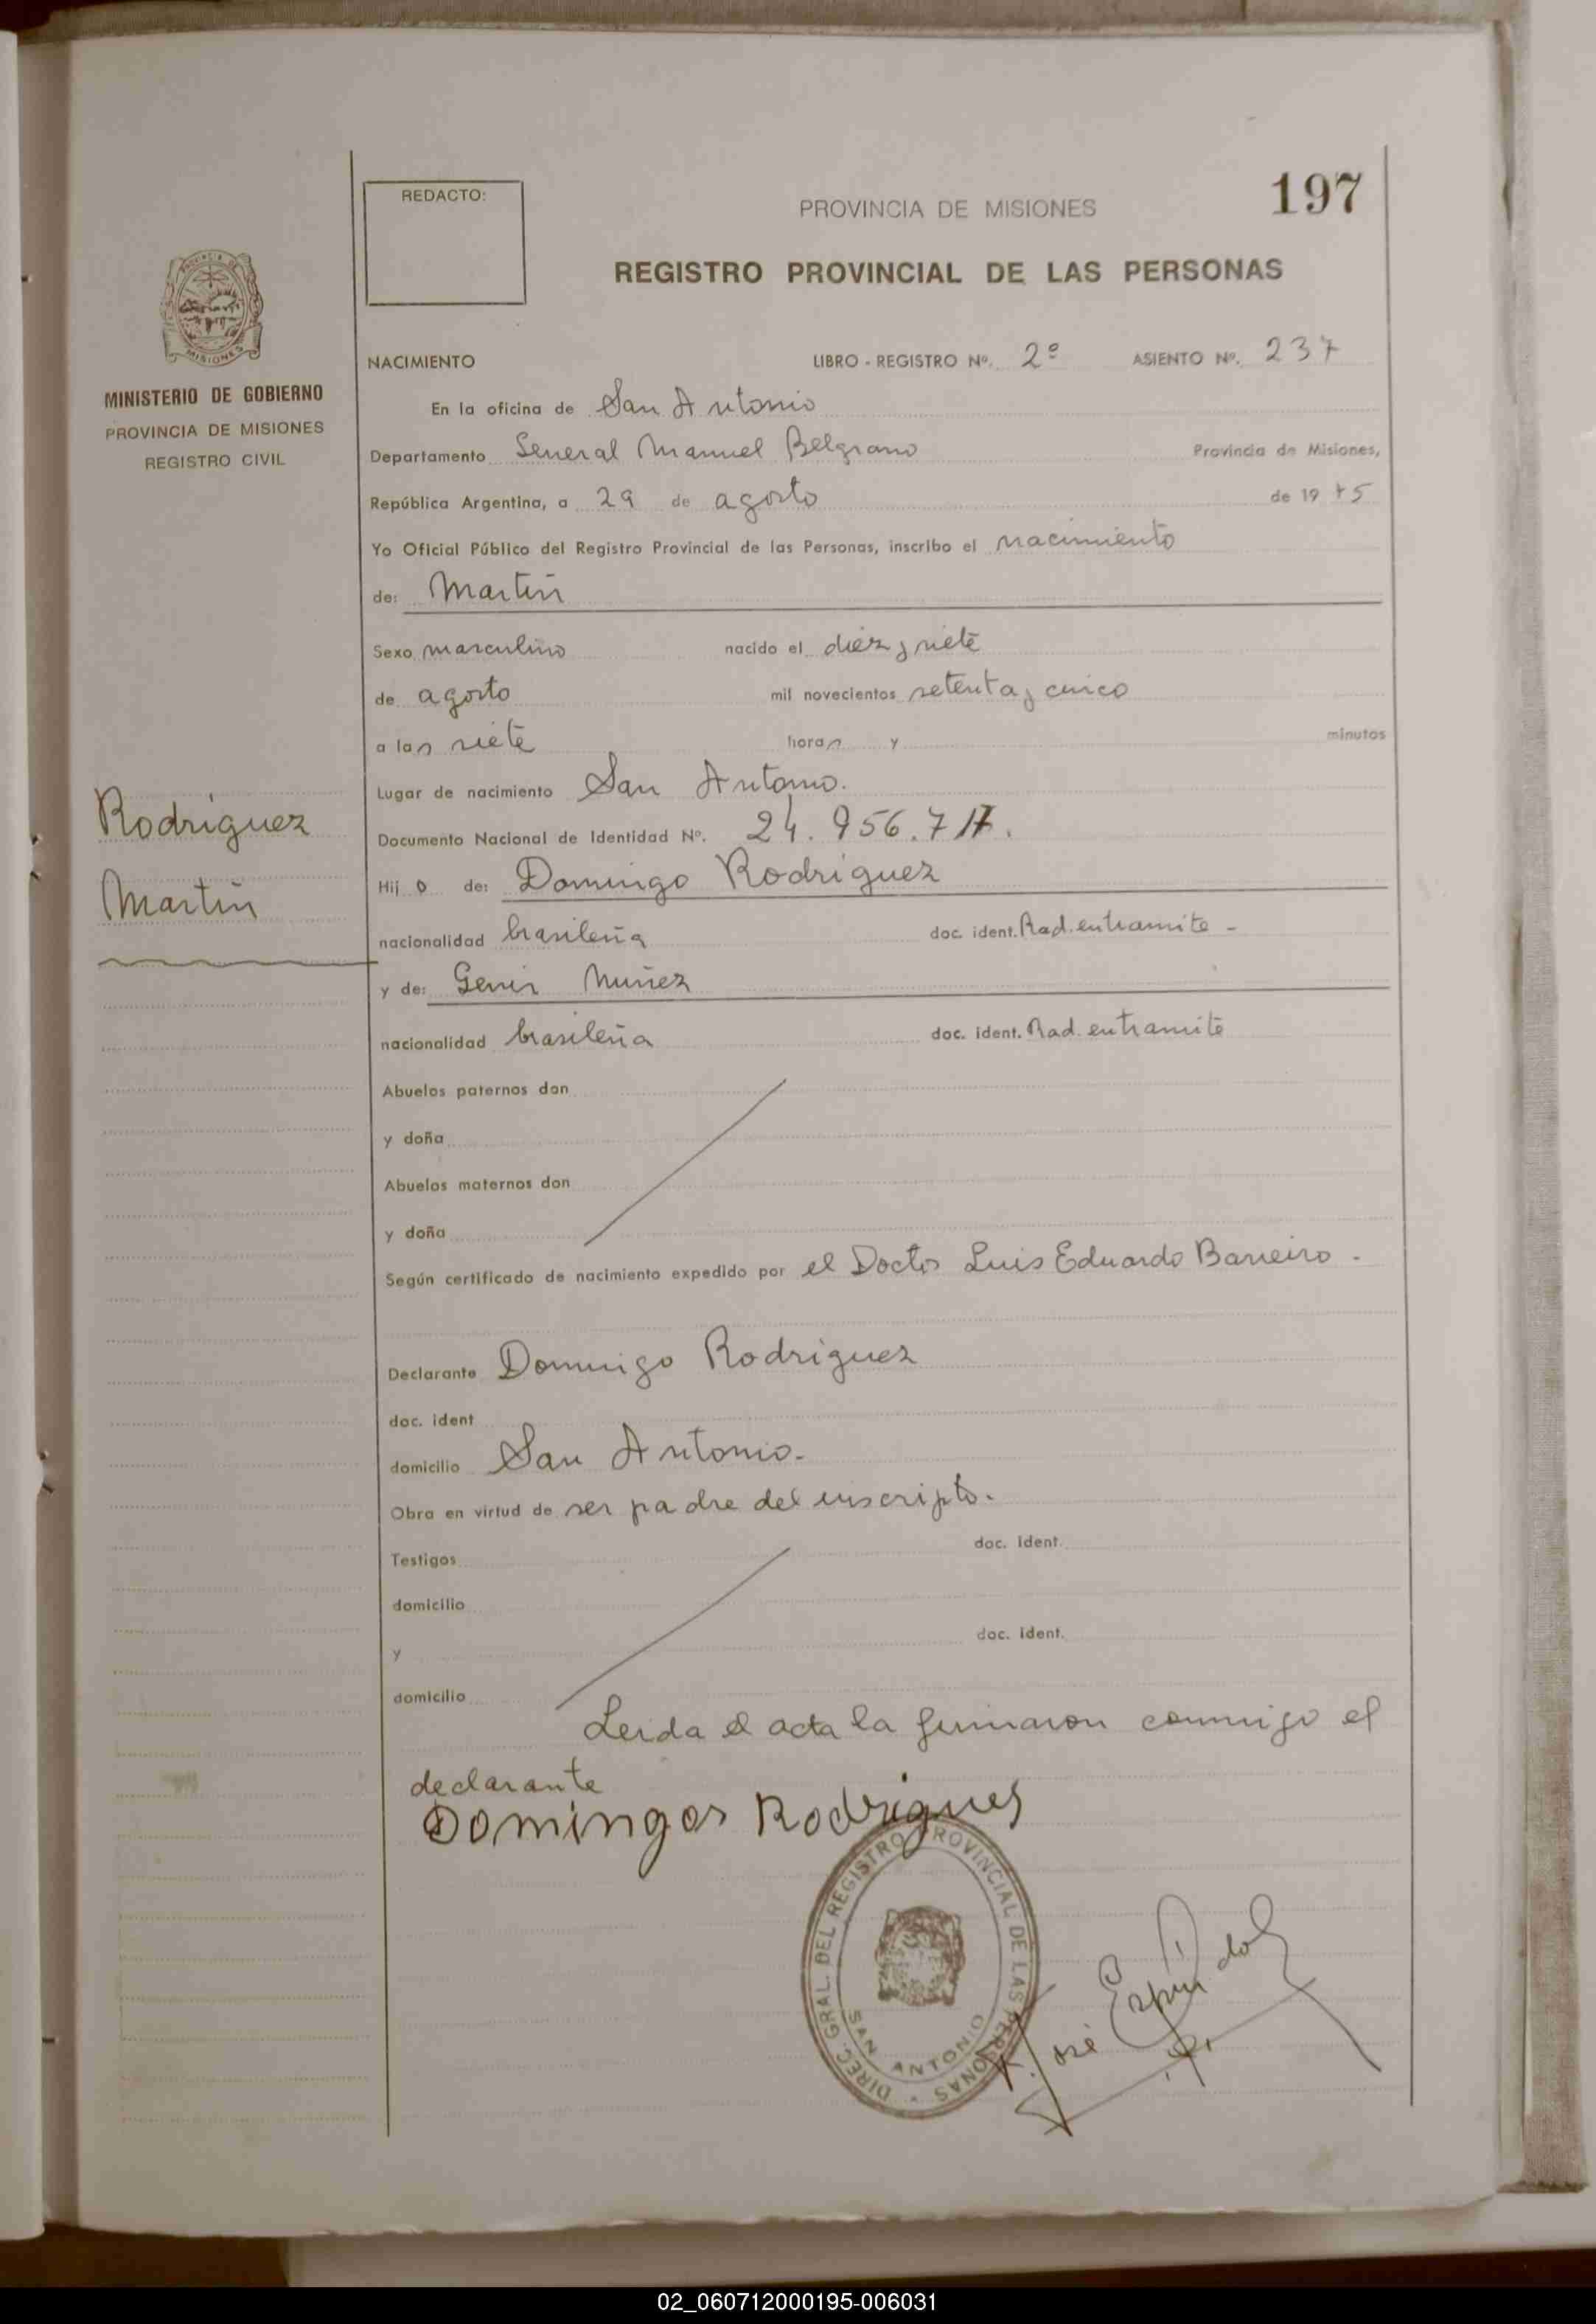 197
REDACTO:
PROVINCIA DE MISIONES
REGISTRO PROVINCIAL DE LAS PERSONAS
PROVINCIA DE
MISIONES
MINISTERIO DE GOBIERNO
PROVINCIA DE MISIONES
REGISTRO CIVIL
NACIMIENTO LIBRO - REGISTRO Nº. 2º ASIENTO Nº. 237
En la oficina de San Antonio
Departamento General Manuel Belgrano Provincia de Misiones,
República Argentina, a 29 de agosto de 1975
Yo Oficial Público del Registro Provincial de las Personas, inscribo el nacimiento
de: Martin
Sexo masculino nacido el diez y siete
de agosto mil novecientos setenta y cinco
a las siete horas y minutos
Lugar de nacimiento San Antonio.
Rodriguez
Martin
Documento Nacional de Identidad Nº. 24.956.7
Hijo de: Domingo Rodriguez
nacionalidad brasileña doc. ident. Rad. en tramite -
y de: Genir Nuñez
nacionalidad brasileña doc. ident. Rad. en tramite
Abuelos paternos don
y doña
Abuelos maternos don
y doña
Según certificado de nacimiento expedido por el Doctor Luis Eduardo Barreiro -
Declarante Domingo Rodriguez
doc. ident
domicilio San Antonio.
Obra en virtud de ser padre del inscripto.
Testigos doc. ident.
domicilio
y doc. ident.
domicilio
Leida el acta la firmaron conmigo el
declarante
Domingos Rodrigues
DIREC. GRAL. DEL REGISTRO PROVINCIAL DE LAS PERSONAS
SAN ANTONIO
José Espindola
02_060712000195-006031